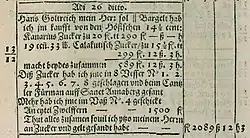 Adi 26 ditto.
Hans Goltreich mein Herr sol || Bargelt hab
ich jm kaufft von den Höstischen 14½ cent:
Kanarius Zucker zu 20 fl. tt 290 fl. — ß —
19 cent. 33 lb. Calakutisch Zucker / zu 15½ fl.
tt 299 fl. 12 ß. 3 h.
13
12
macht beydes zusammen 589 fl. 12 ß. 3 h.
Diß Zucker hab ich jme in 8 Vesser Nº 1. 2.
3. 4. 5. 6. 7. 8 geschlagen und beim Cantz
ler Fürman auff Sanct Annaberg gesant.
Mehr hab ich jme im Vaß Nº 4 geschickt
An eitel Zwelffern — 1500 fl
Thut alles zusamen souil ich vpo meinem Herrn
an Zucker vnd gelt gesandt habe — — fl 2089 ß 12 h 3